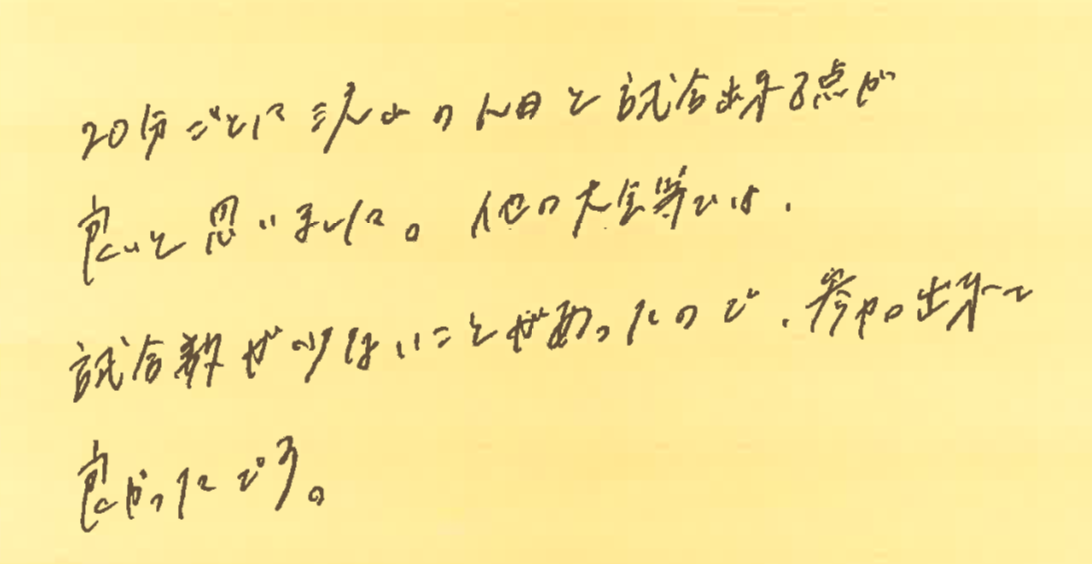 20分ごとに沢山の人と試合出来る点が
良いと思いました。他の大会等では、
試合数が少ないことがあったので、参加出来て
良かったです。